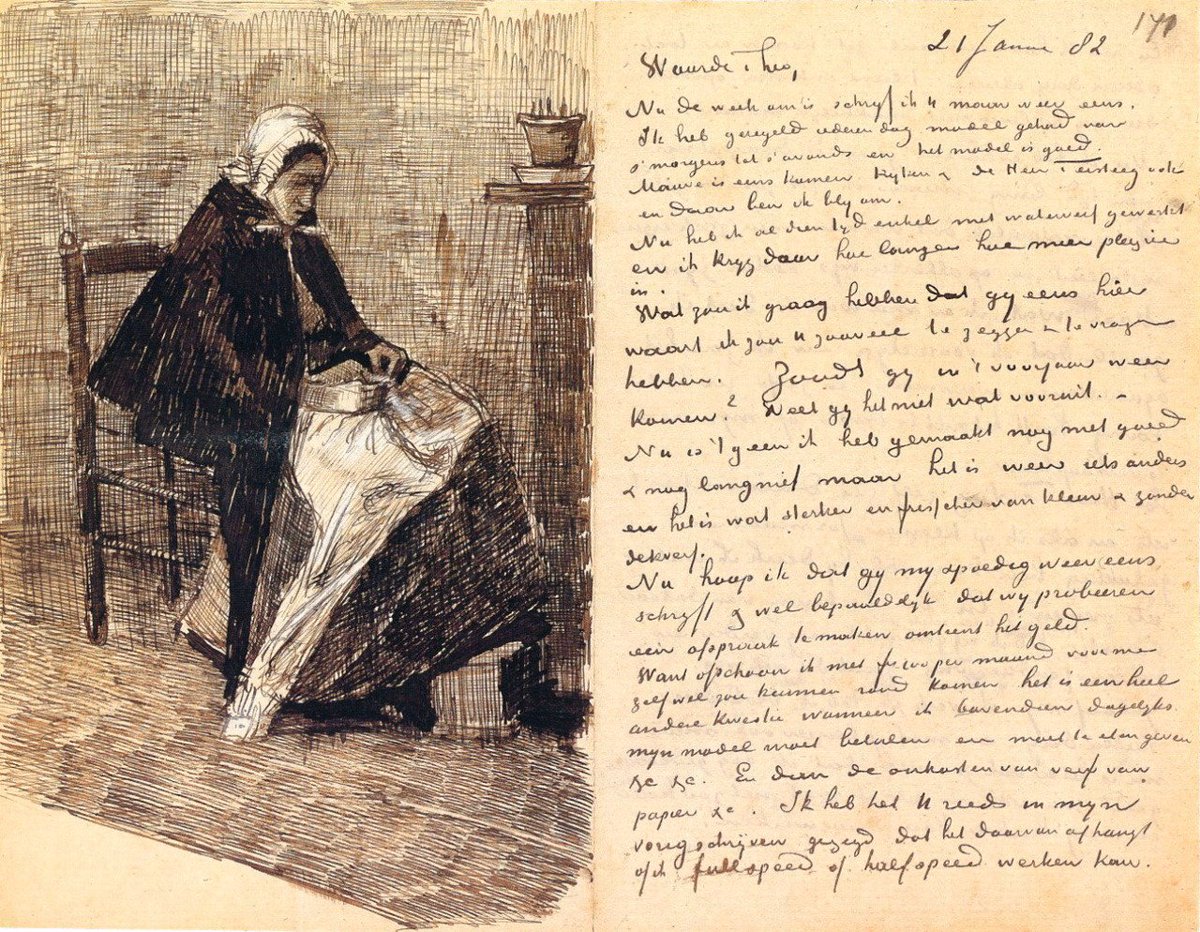 171
21 Januari 82
Waarde Theo,
Nu de week om is schryf ik U maar weer eens.
Ik heb geregeld iederen dag model gehad van
s'morgens tot s'avonds en het model is goed.
Mauve is eens komen kyken & de Heer Tersteeg ook
en daar ben ik bly om.
Nu heb ik al dien tyd enkel met waterverf gewerkt
en ik kryg daar hoe langer hoe meer pleizier
in.
Wat zou ik graag hebben dat gy eens hier
waart ik zou U zooveel te zeggen & te vragen
hebben. Zoudt gy in 't voorjaar weer
komen? Weet gy het niet wat vooruit. –
Nu is 't geen ik heb gemaakt nog niet goed
& nog lang niet maar het is weer iets anders
en het is wat sterker en frisscher van kleur & zonder
dekverf.
Nu hoop ik dat gy my spoedig weer eens
schryft & wel bepaaldelyk dat wy probeeren
een afspraak te maken omtrent het geld.
Want ofschoon ik met per maand voor me
zelf wel zou kunnen rond komen het is een heel
andere kwestie wanneer ik bovendien dagelyks
myn model moet betalen en moet te eten geven
&c &c. En dan de onkosten van verf van
papier &c. Ik heb het U reeds in myn
vorig schrijven gezegd dat het daarvan afhangt
of ik full speed of half speed werken kan.